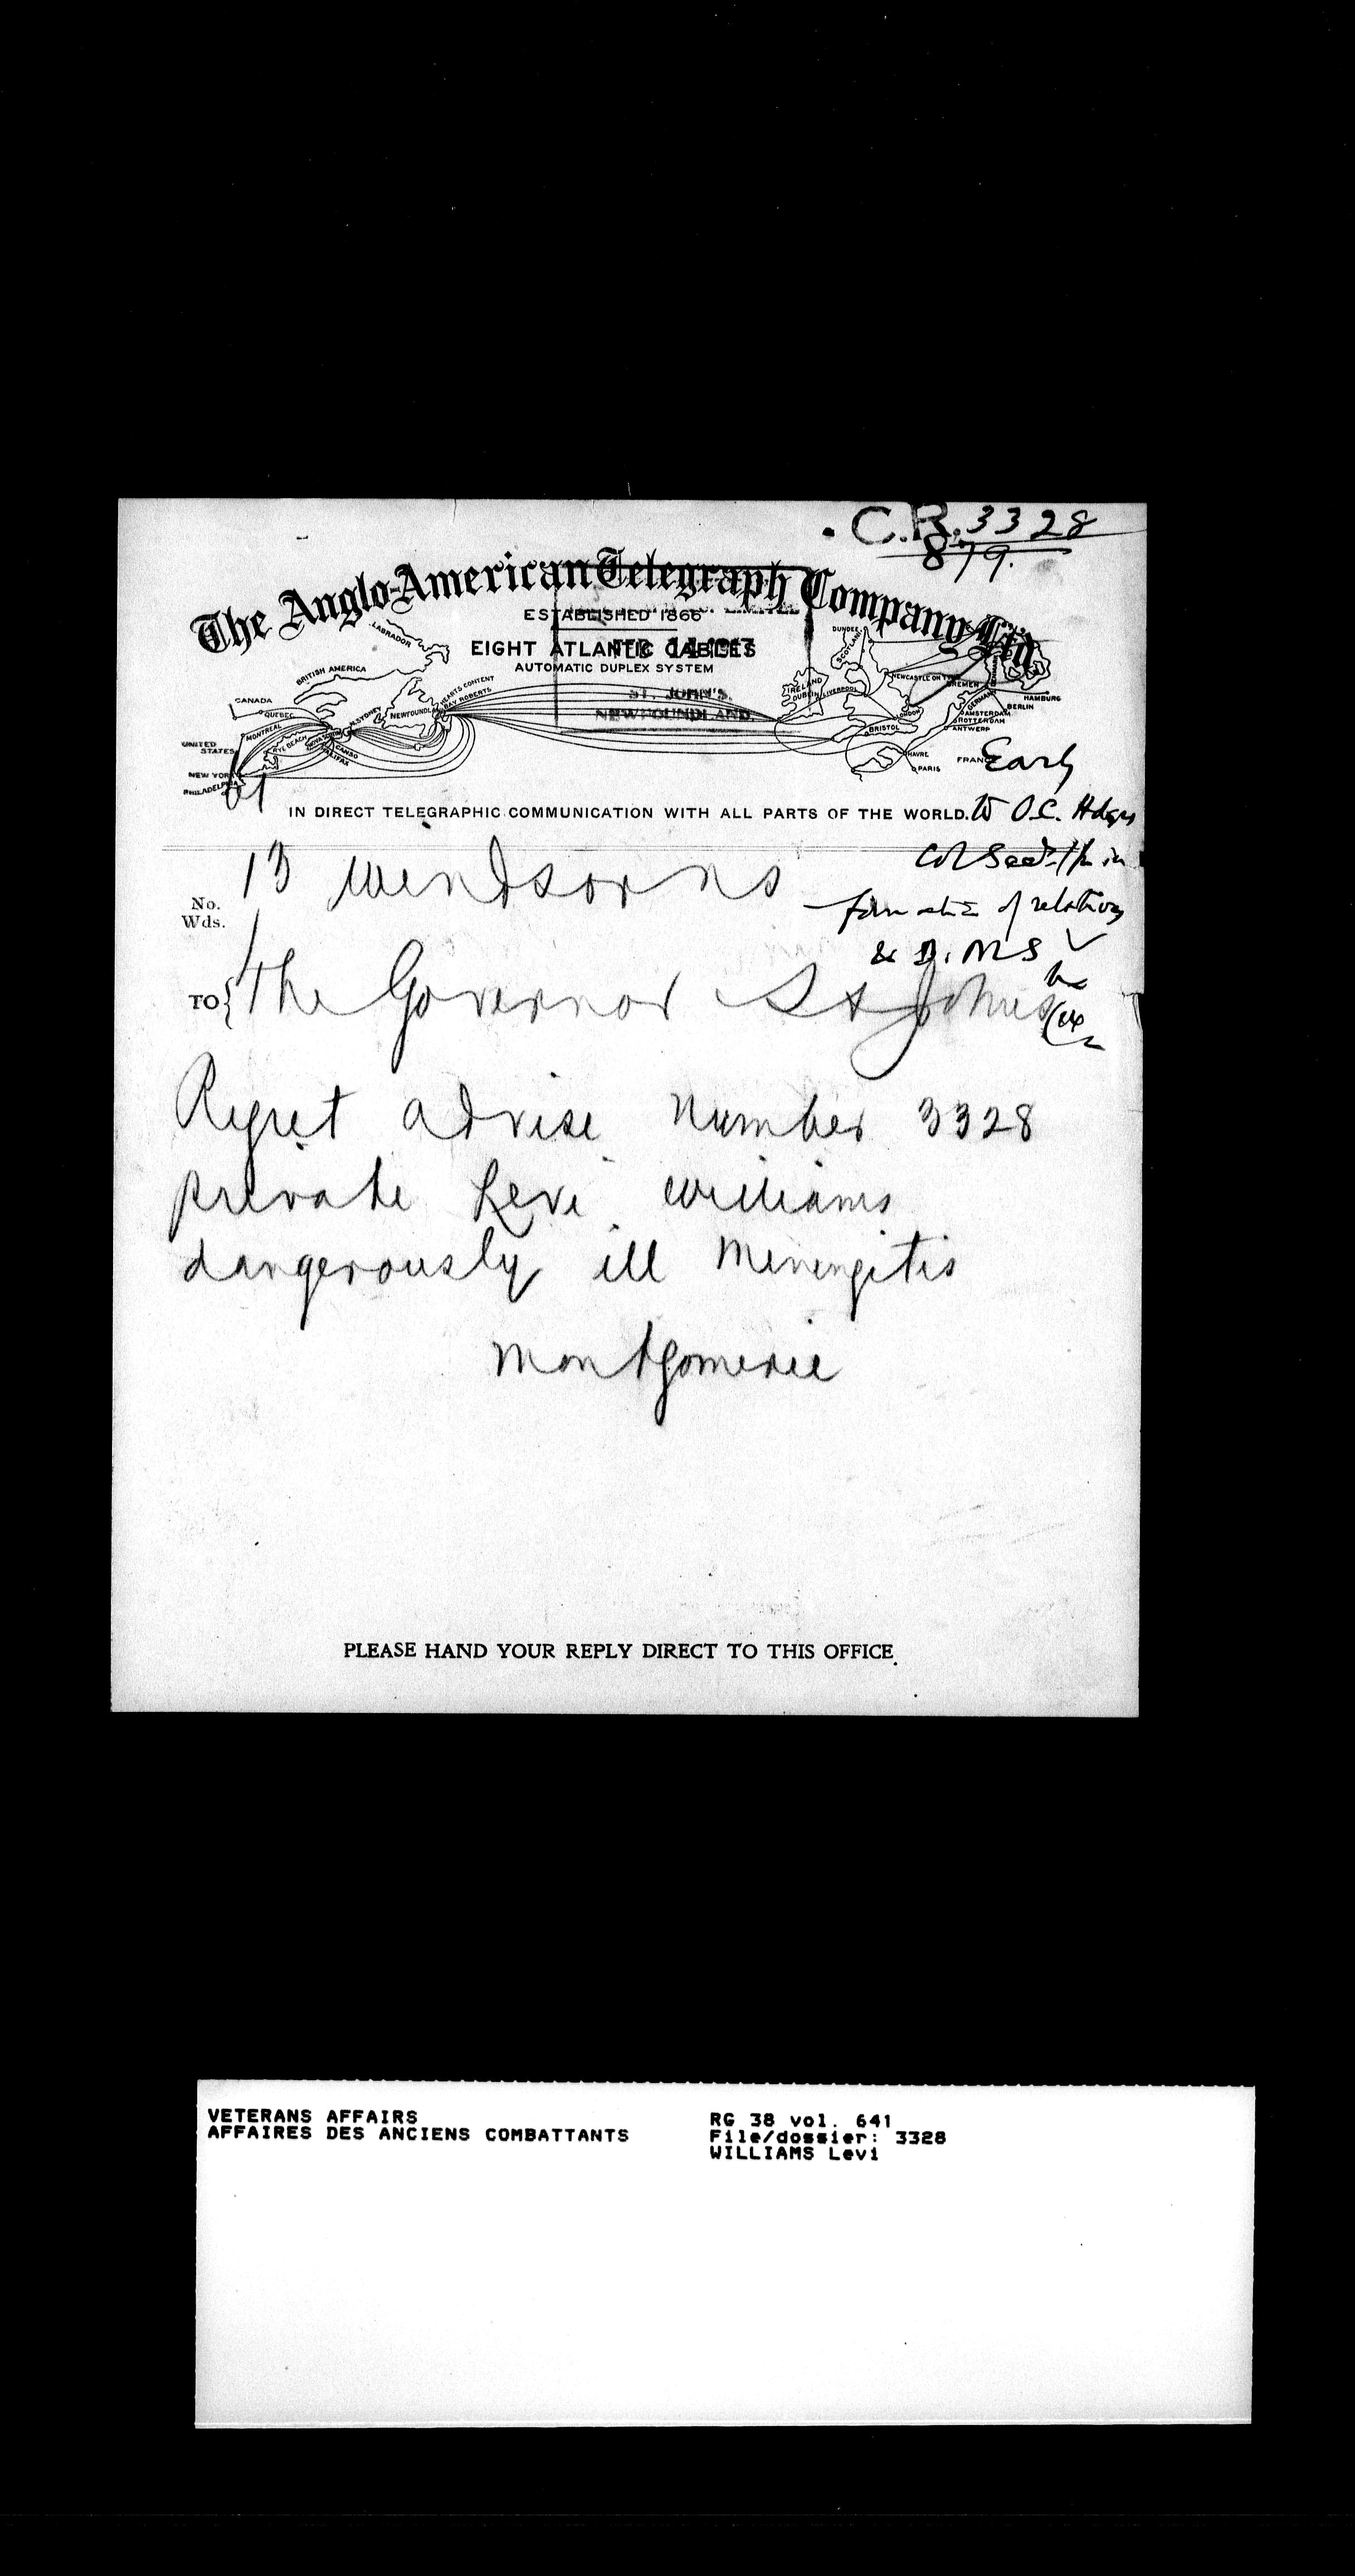 C.R. 3328
879.
The Anglo-American Telegraph Company, Ltd.
ESTABLISHED 1866
EIGHT ATLANTIC CABLES
AUTOMATIC DUPLEX SYSTEM
ST. JOHN'S.
NEWFOUNDLAND.
LABRADOR
BRITISH AMERICA
CANADA
QUEBEC
MONTREAL
UNITED STATES
NEW YORK
PHILADELPHIA
RYE BEACH
NOVA SCOTIA
CANSO
HALIFAX
N. SYDNEY
NEWFOUNDLAND
HEARTS CONTENT
BAY ROBERTS
DUNDEE
SCOTLAND
IRELAND
DUBLIN
LIVERPOOL
NEWCASTLE ON TYNE
LONDON
BRISTOL
BREMEN
GERMANY
HAMBURG
BERLIN
AMSTERDAM
ROTTERDAM
ANTWERP
HAVRE
PARIS
FRANCE
Early
IN DIRECT TELEGRAPHIC COMMUNICATION WITH ALL PARTS OF THE WORLD.
to O.C. Hdqrs
Col Secty for in
formation of relatives
& D.M.S
No.
Wds.
13 Windsor ns
TO The Governor St Johns
Regret advise number 3328
private Levi Williams
dangerously ill Menengitis
Montgomerie
PLEASE HAND YOUR REPLY DIRECT TO THIS OFFICE.
VETERANS AFFAIRS
AFFAIRES DES ANCIENS COMBATTANTS
RG 38 vol. 641
File/dossier: 3328
WILLIAMS Levi